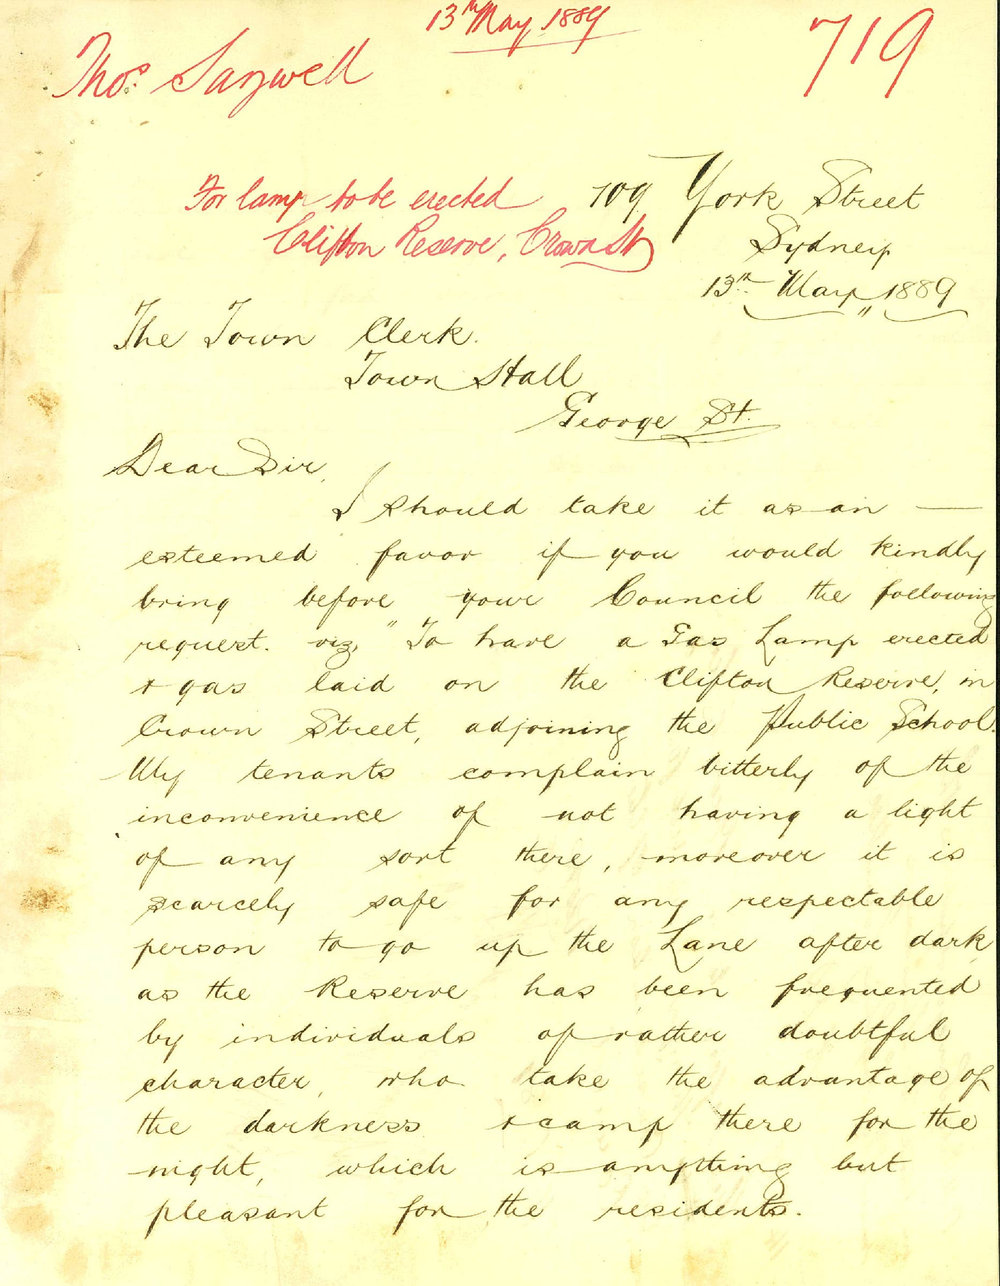 13th May 1889
719
Thos. Sarzwell
For lamp to be erected
Clifton Reserve, Crown St
109 York Street
Sydney
13th May 1889
The Town Clerk.
Town Hall
George St.
Dear Sir,
I should take it as an —
esteemed favor if you would kindly
bring before your Council the following
request. viz, "To have a Gas Lamp erected
& gas laid on the Clifton Reserve, in
Crown Street, adjoining the Public School.
My tenants complain bitterly of the
inconvenience of not having a light
of any sort there, moreover it is
scarcely safe for any respectable
person to go up the Lane after dark
as the Reserve has been frequented
by individuals of rather doubtful
character, who take the advantage of
the darkness & camp there for the
night, which is anything but
pleasant for the residents.